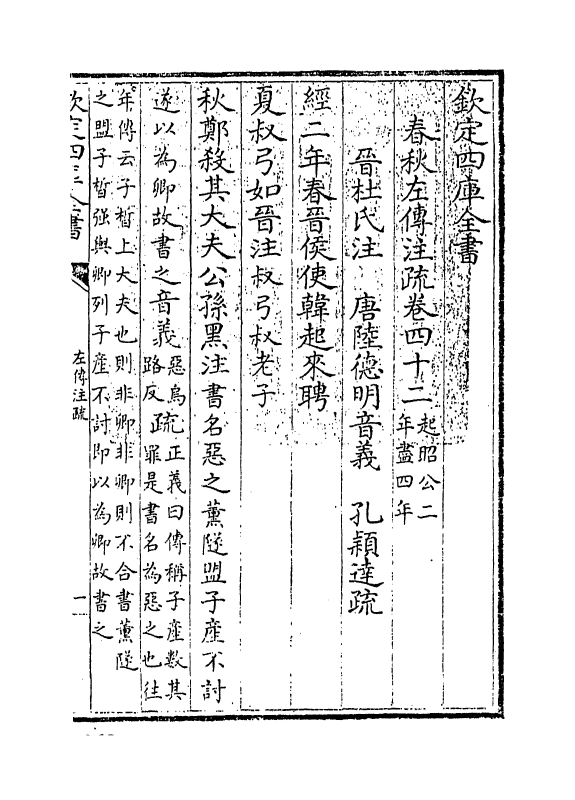 欽定四庫全書
春秋左傳注疏卷四十二
起昭公二
年盡四年
晉杜氏注 唐陸德明音義 孔穎達疏
經二年春晉侯使韓起來聘
夏叔弓如晉注叔弓叔老子
秋鄭殺其大夫公孫黑注書名惡之薰隧盟子產不討
遂以為卿故書之音義
惡烏
路反
疏
正義曰傳稱子產數其
罪是書名為惡之也往
年傳云子晳上大夫也則非卿非卿則不合書薰隧
之盟子晳強與卿列子產不討即以為卿故書之
欽定四庫全書
左傳注疏
一